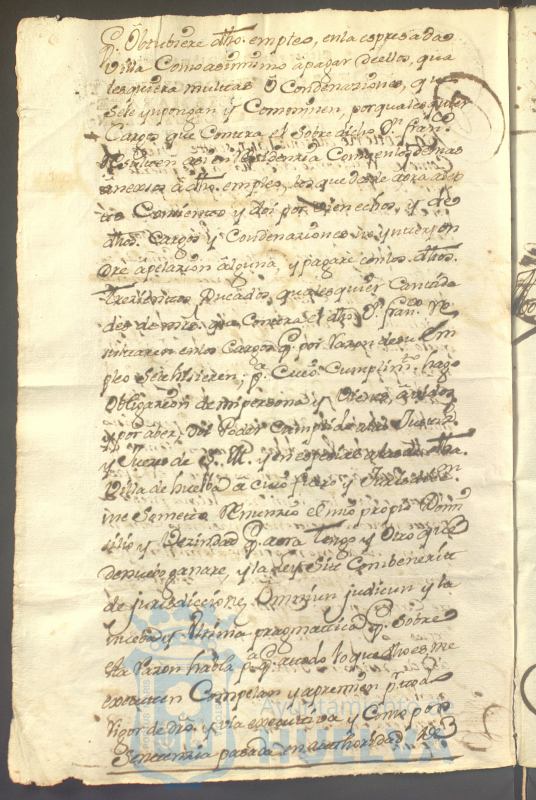 q.e Obtubiere dho. empleo, en la espresada
villa Como asimismo â pagar de ellos, qua
lesquiera multas ô Condenaziones, que
se le ympongan y Conminen, por qualesquier
Cargos que Contra el Sobre dicho D.n fran.co
Resulten asi en residenzia Como en lo demas
ânexso â dho. empleo, los que desde aora
y doi por bien echos, y de
dhos. Cargos y Condenaziones no yntterpon
dre âpelazion âlguna, y pagare con los dhos.
trezientos Ducados, quales quier Cantida
des de mrs. que Contra el dho D.n fran.co Re
sultaren en los Cargos q.e por razon de su Em
pleo se le hisieren, p.a Cuio Cumplim.to hago
Obligazion de mi persona y Vienes, âuidos
y por aber, Doi Poder Cumplido a los Juezes
y Justt.s de S. M. y en espezial a los de dha.
Villa de huelba â Cuio fuero y Jurisd.on
me Sometto Renunzio el mio propio Domi
silio y Vezindad q.e aora tengo y Otro que
de nuebo ganare, y la ley Sit Combenerit
de jurisdiccione Omniun judicun y la
nueba y Vltima pragmattica q.e Sobre
esta razon habla p.a q.e a todo lo que dho es me
executen Compelan y apremien p.r todo
Vigor de dro. y via executiva y Como por
Sentenzia pasada en authoridad de
Ayuntamiento de
HUELVA